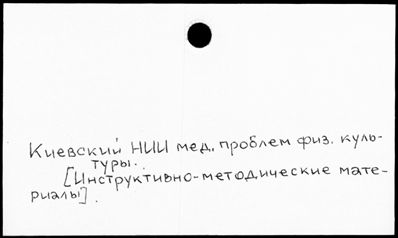 Киевский НИИ мед. проблем физ. куль-
туры.
[Инструктивно-методические мате-
риалы].